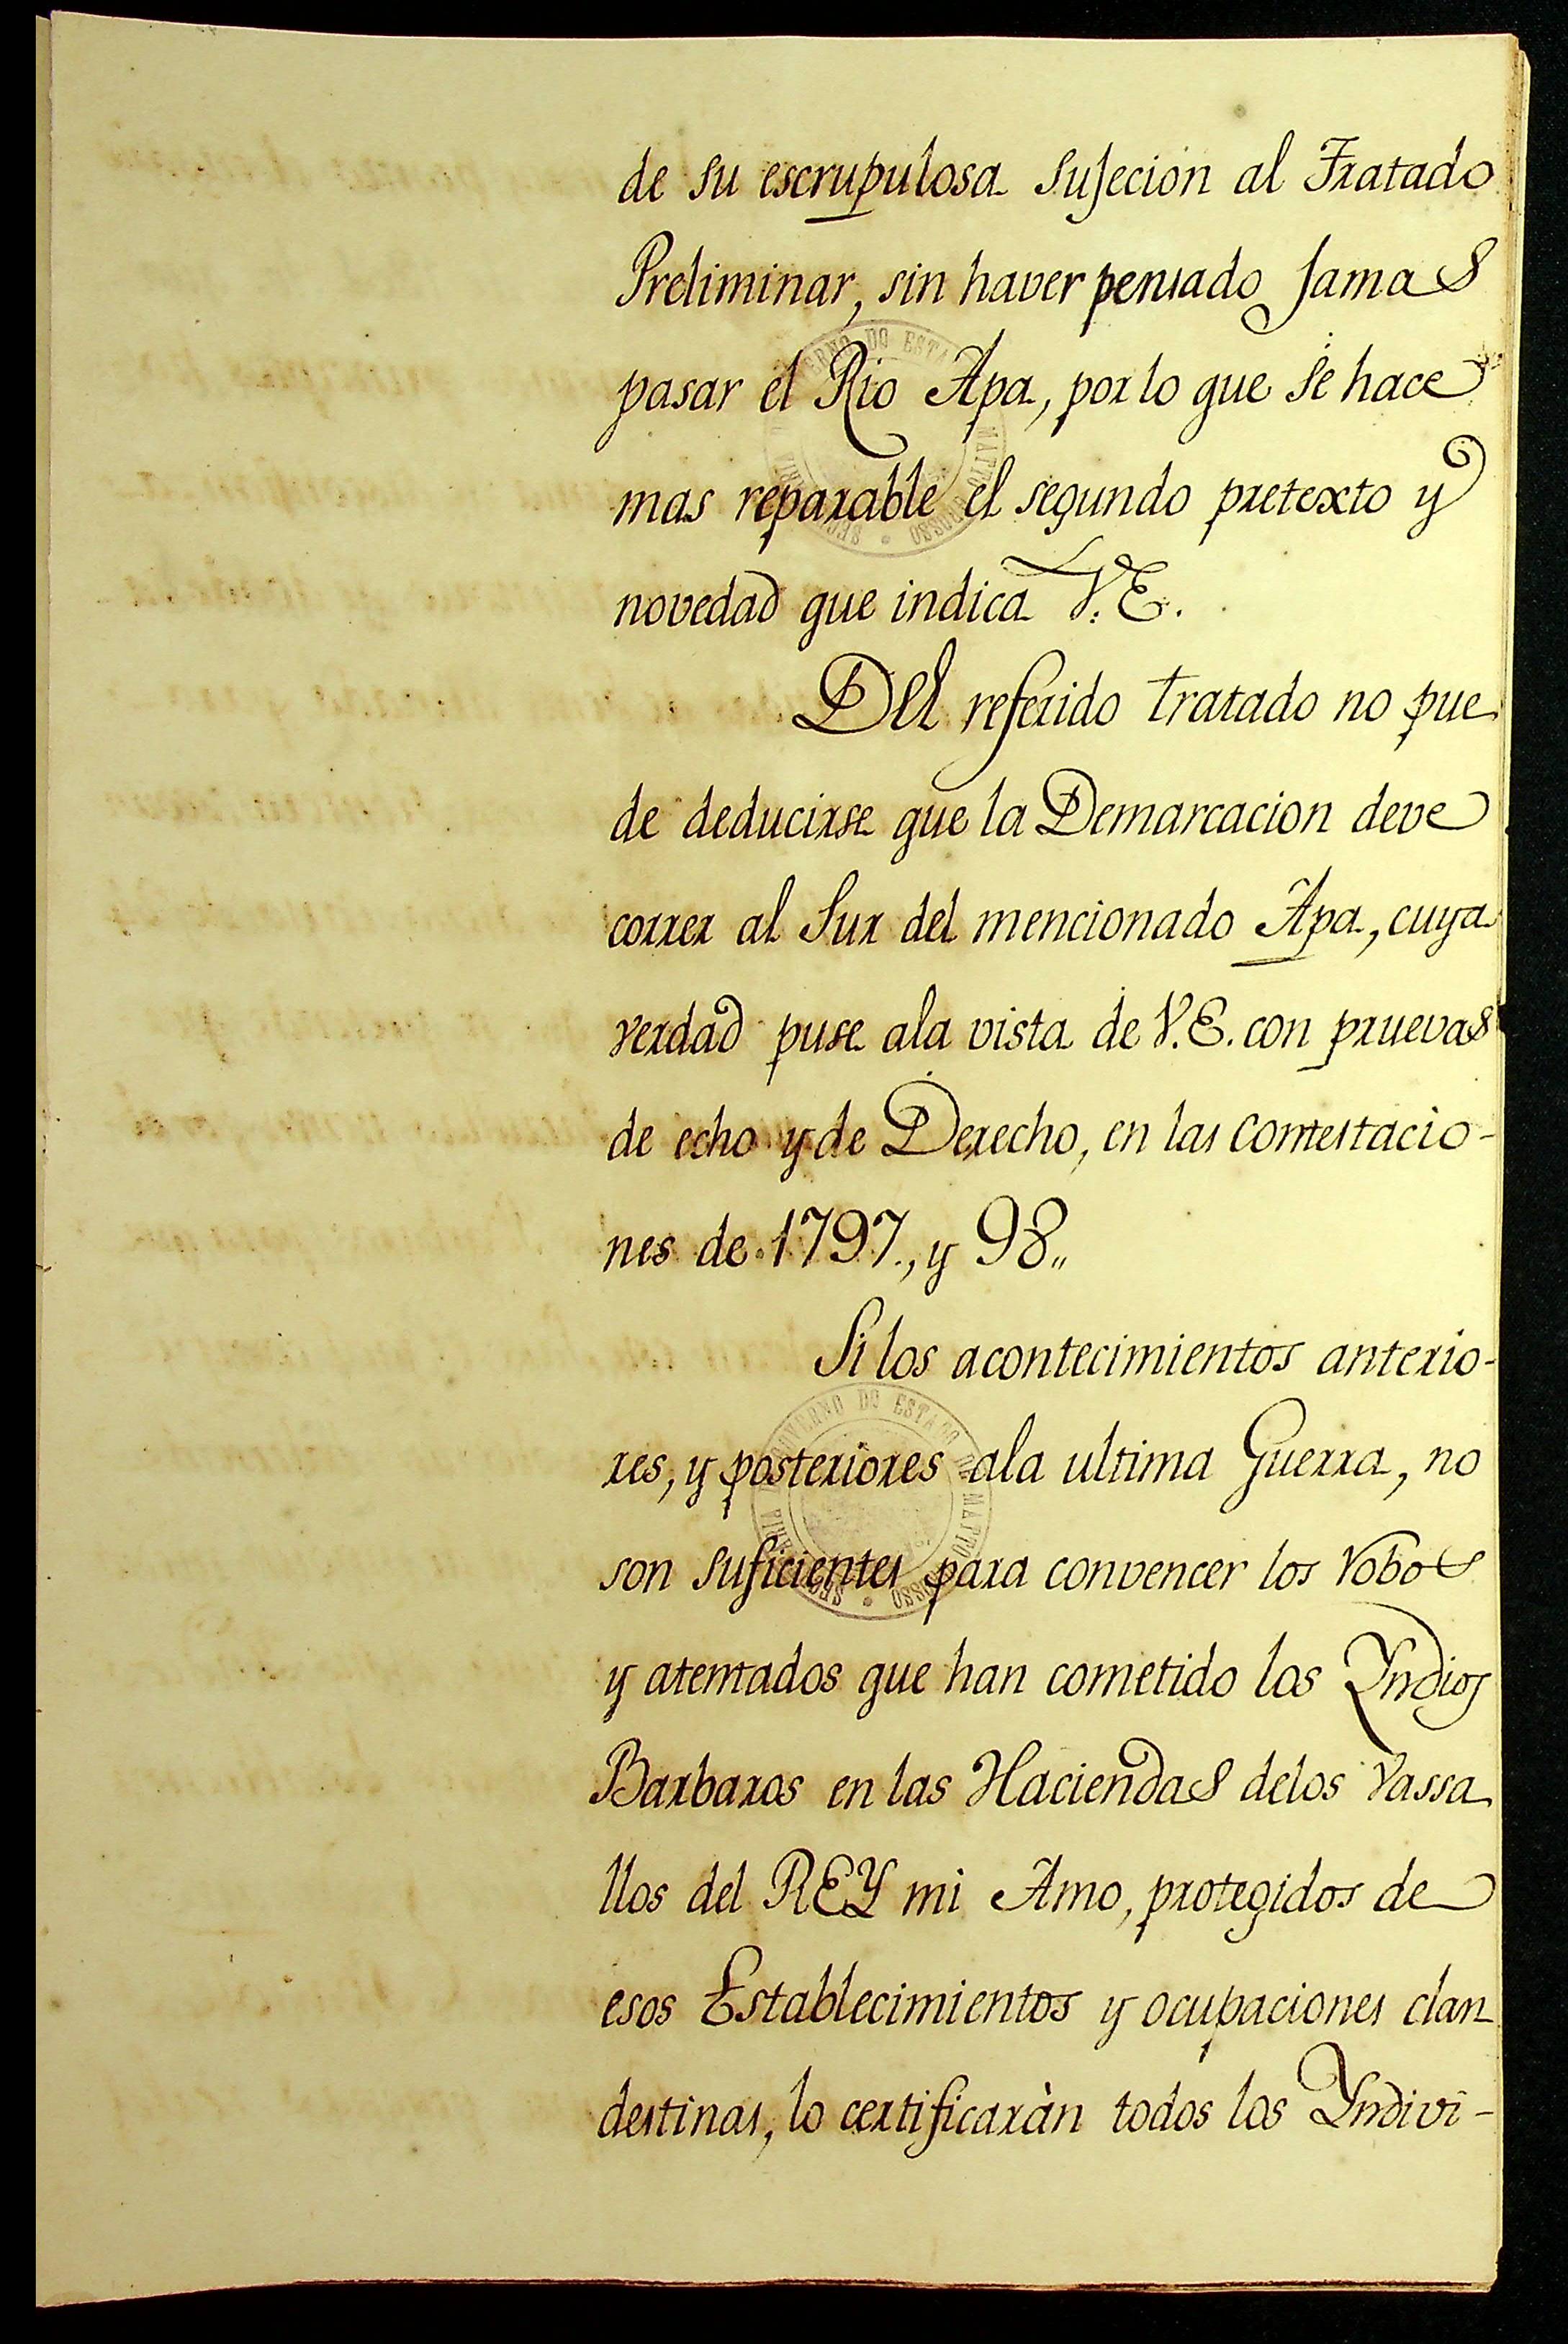 de su escrupulosa sujecion al Tratado
Preliminar, sin haver pensado jamas
pasar el Rio Apa, por lo que se hace
mas reparable el segundo pretexto y
novedad que indica V.E.
Del referido tratado no pue
de deducirse que la Demarcacion deve
correr al Sur del mencionado Apa, cuya
verdad puse ala vista de V.E. con pruevas
de echo y de Derecho, en las contestacio-
nes de 1797., y 98,,
Si los acontecimientos anterio-
res, y posteriores ala ultima Guerra, no
son suficientes para convencer los robos
y atentados que han cometido los Yndios
Barbaros en las Haciendas delos Vassa
llos del REY mi Amo, protegidos de
esos Establecimientos y ocupaciones clan
destinas, lo certificaràn todos los Yndivi-
GOVERNO DO ESTADO DE MATTO GROSSO